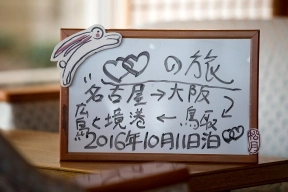 の旅
名古屋→大阪
広島く境港←鳥取
2016年10月11日泊